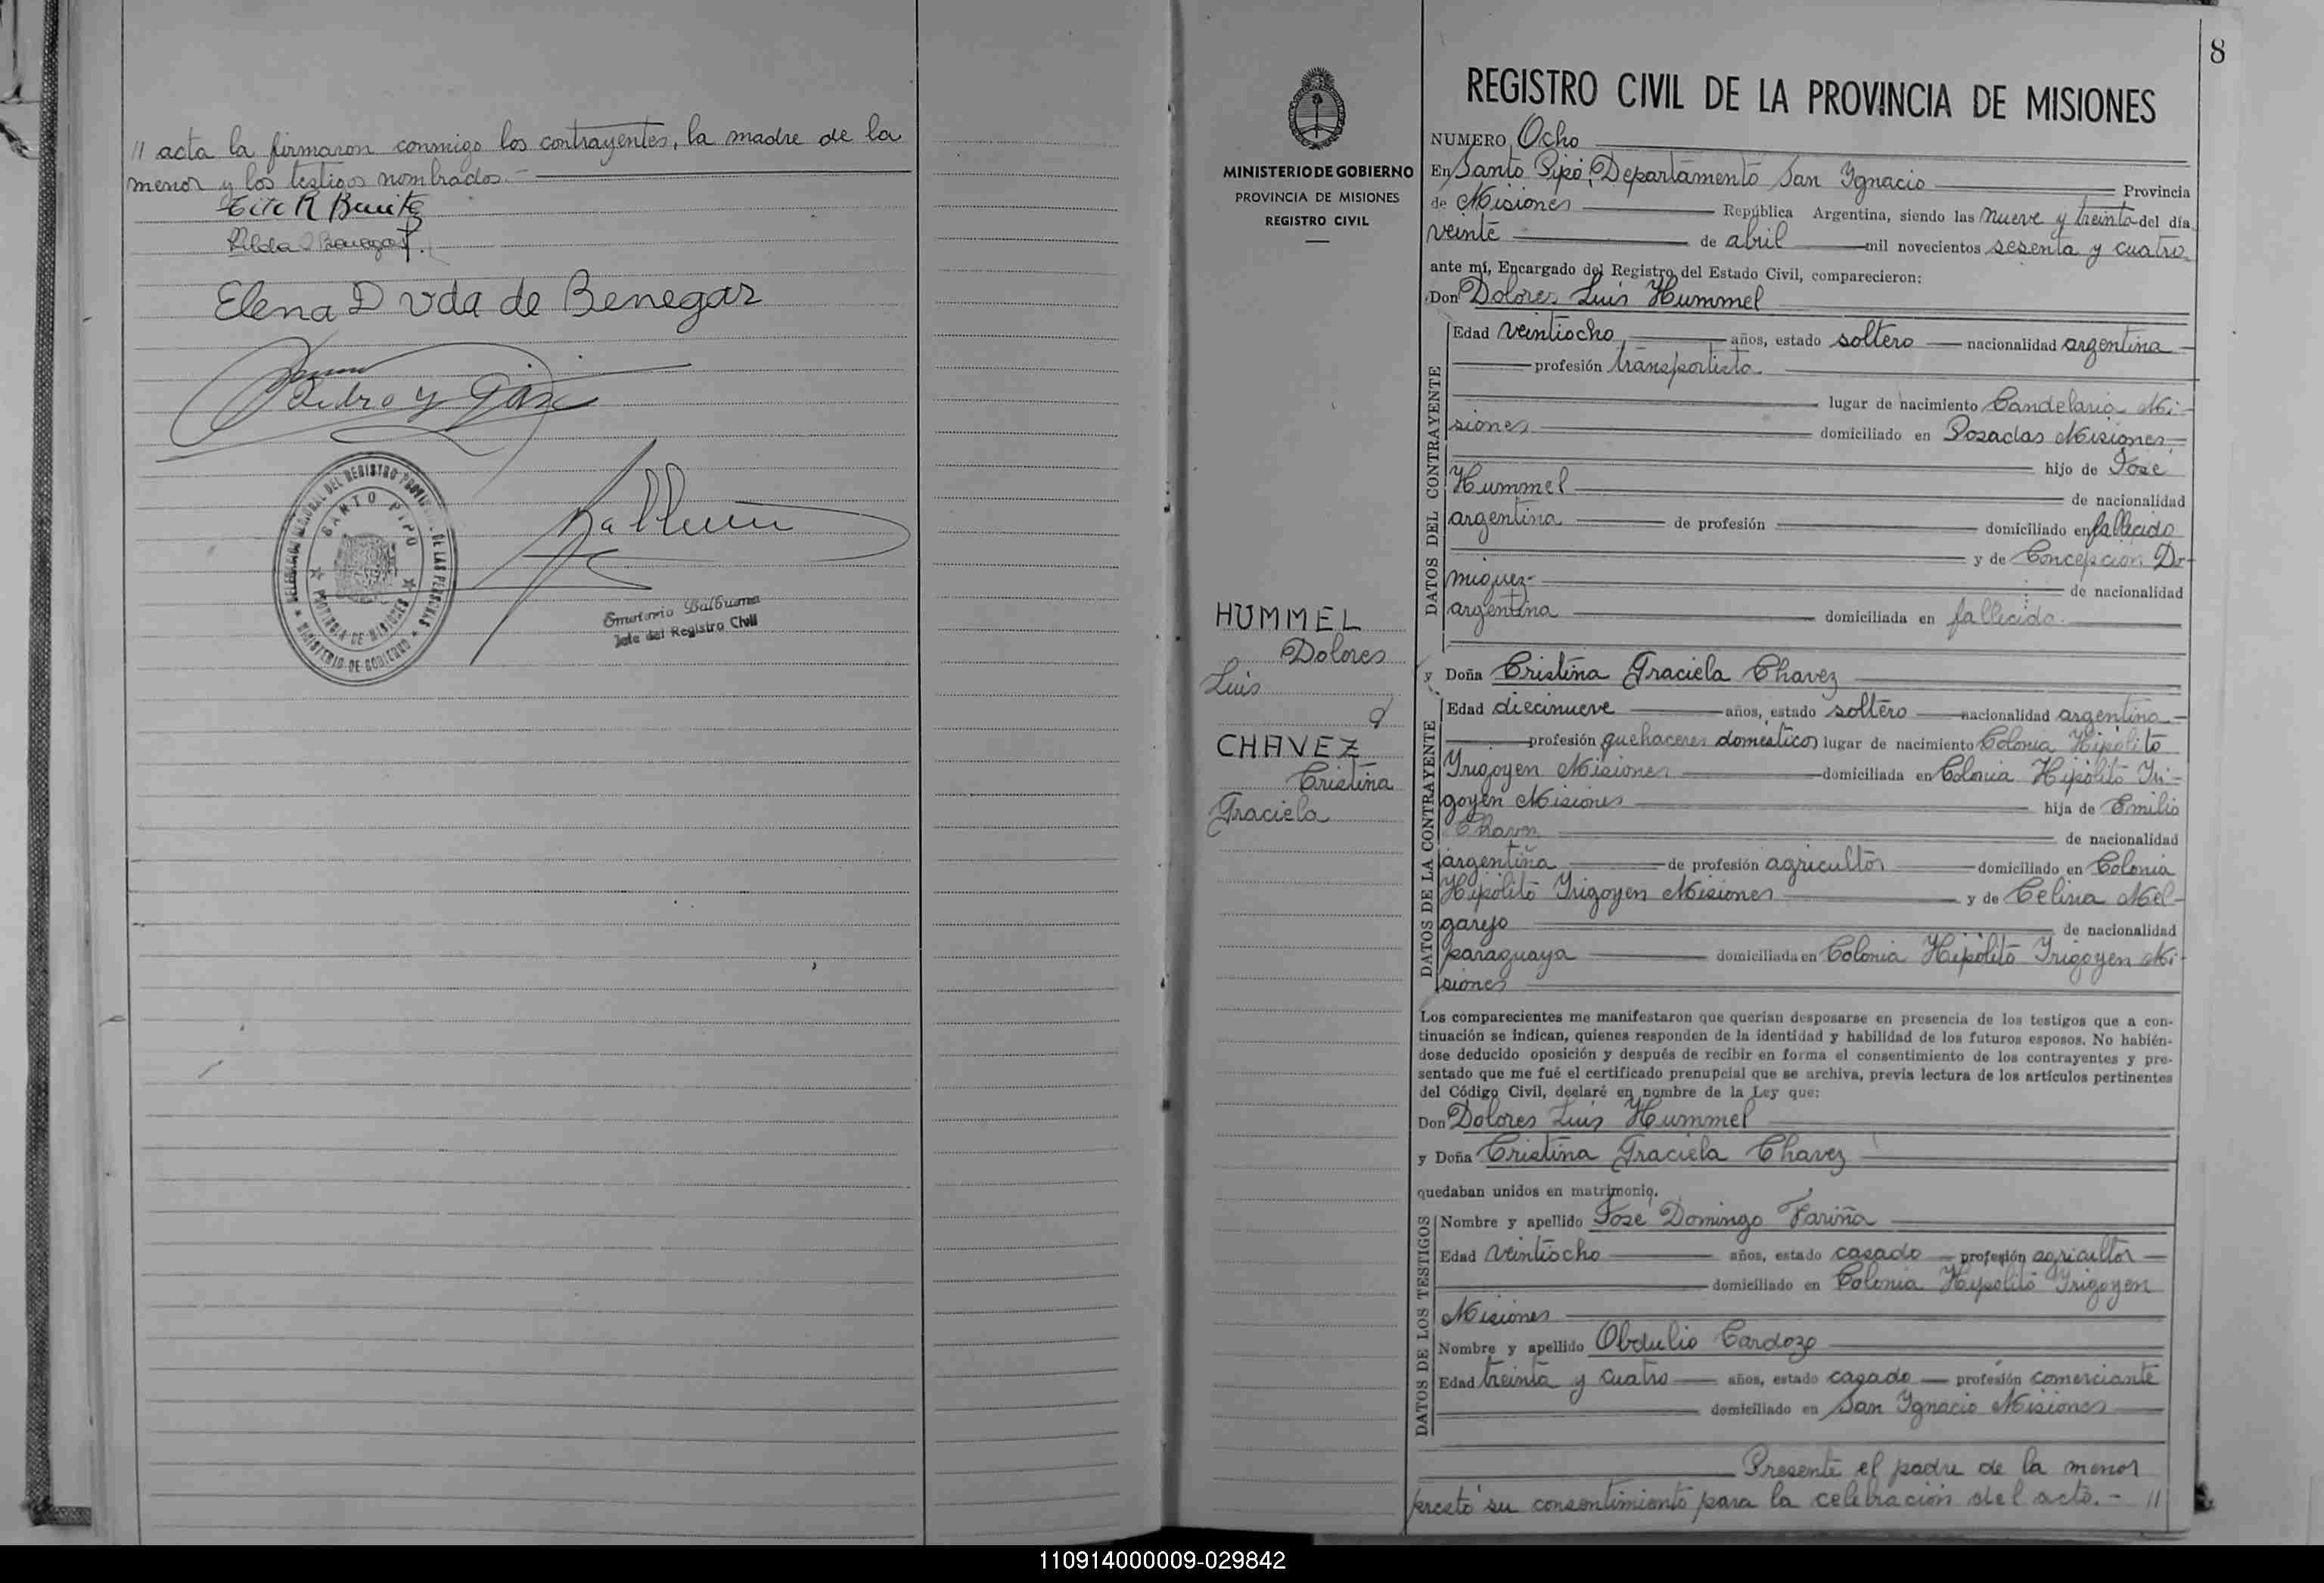 // acta la firmaron conmigo los contrayentes, la madre de la
menor y los testigos nombrados.-
Tito R Benitez
Elena D vda de Benegaz
Pedro y
DELEGACION SECCIONAL DEL REGISTRO PROVINCIAL DE LAS PERSONAS
SANTO PIPO
PROVINCIA DE MISIONES
MINISTERIO DE GOBIERNO
Balbuena
Jefe del Registro Civil
8
MINISTERIO DE GOBIERNO
PROVINCIA DE MISIONES
REGISTRO CIVIL
HUMMEL
Dolores
Luis
CHAVEZ
Cristina
Graciela
REGISTRO CIVIL DE LA PROVINCIA DE MISIONES
NUMERO Ocho
En Santo Pipó, Departamento San Ignacio Provincia
de Misiones República Argentina, siendo las nueve y treinta del día
veinte de abril mil novecientos sesenta y cuatro
ante mí, Encargado del Registro del Estado Civil, comparecieron:
Don Dolores Luis Hummel
DATOS DEL CONTRAYENTE
Edad veintiocho años, estado soltero nacionalidad argentina
profesión transportista
lugar de nacimiento Candelaria Mi-
siones domiciliado en Posadas Misiones
hijo de José
Hummel de nacionalidad
argentina de profesión domiciliado en fallecido
y de Concepcion Do-
minguez de nacionalidad
argentina domiciliada en fallecida.
y Doña Cristina Graciela Chavez
DATOS DE LA CONTRAYENTE
Edad diecinueve años, estado soltero nacionalidad argentina
profesión quehaceres domésticos lugar de nacimiento Colonia Hipólito
Yrigoyen Misiones domiciliada en Colonia Hipólito Yri-
goyen Misiones hija de Emilio
Chavez de nacionalidad
argentina de profesión agricultor domiciliado en Colonia
Hipólito Yrigoyen Misiones y de Celina Mel-
garejo de nacionalidad
paraguaya domiciliada en Colonia Hipólito Yrigoyen Mi-
siones
Los comparecientes me manifestaron que querían desposarse en presencia de los testigos que a con-
tinuación se indican, quienes responden de la identidad y habilidad de los futuros esposos. No habién-
dose deducido oposición y después de recibir en forma el consentimiento de los contrayentes y pre-
sentado que me fué el certificado prenupcial que se archiva, previa lectura de los artículos pertinentes
del Código Civil, declaré en nombre de la Ley que:
Don Dolores Luis Hummel
y Doña Cristina Graciela Chavez
quedaban unidos en matrimonio.
DATOS DE LOS TESTIGOS
Nombre y apellido José Domingo Fariña
Edad veintiocho años, estado casado profesión agricultor
domiciliado en Colonia Hipólito Yrigoyen
Misiones
Nombre y apellido Obdulio Cardozo
Edad treinta y cuatro años, estado casado profesión comerciante
domiciliado en San Ignacio Misiones
Presente el padre de la menor
prestó su consentimiento para la celebración del acto.- //
110914000009-029842